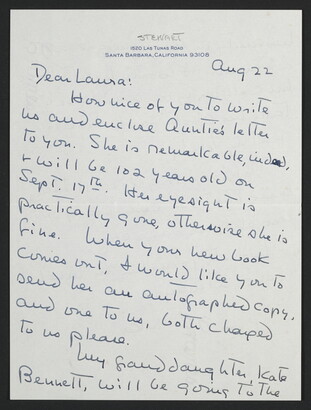 STEWART
1520 LAS TUNAS ROAD
SANTA BARBARA, CALIFORNIA 93103
Aug 22
Dear Laura:
How nice of you to write
us and enclose Auntie's letter
to you. She is remarkable, indeed,
+ will be 102 years old on
Sept. 17th. Her eyesight is
practically gone, otherwise she is
fine. When your new book
comes out, I would like you to
send her an autographed copy,
and one to us, both charged
to us please.
My granddaughter Kate
Bennett, will be going to the